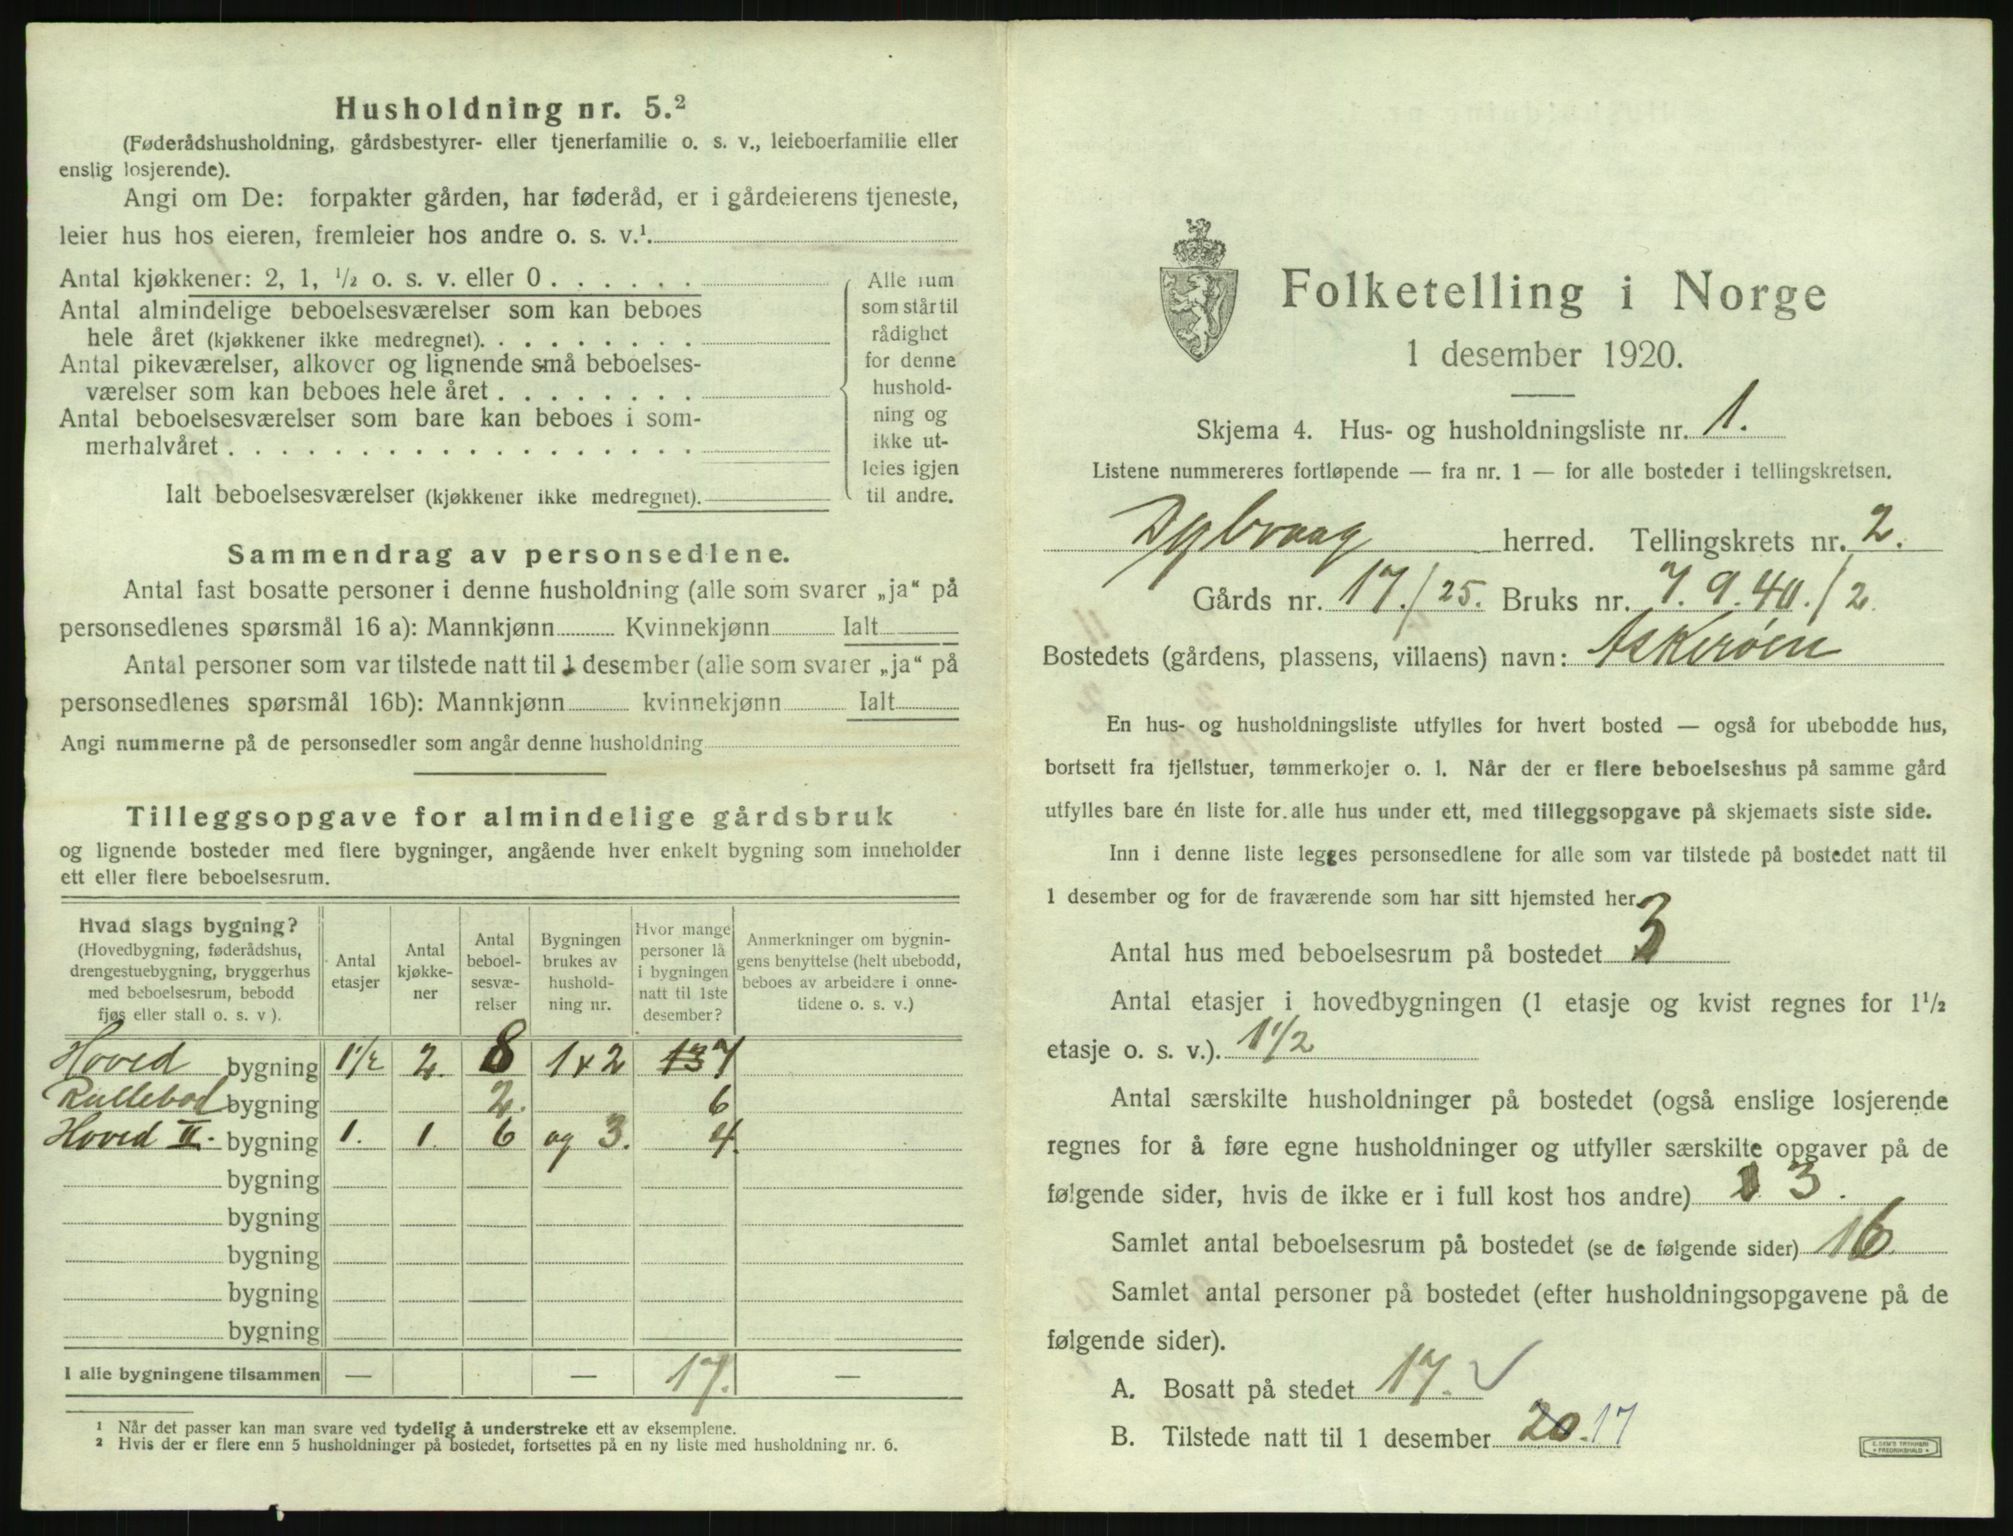 Husholdning nr. 5.²
(Føderådshusholdning, gårdsbestyrer- eller tjenerfamilie o. s. v., leieboerfamilie eller
enslig losjerende).
Angi om De: forpakter gården, har føderåd, er i gårdeierens tjeneste,
leier hus hos eieren, fremleier hos andre o. s. v.¹.
Antal kjøkkener: 2, 1, ½ o. s. v. eller 0 . . . . . .
Antal almindelige beboelsesværelser som kan beboes
hele året (kjøkkener ikke medregnet). . . . . . . . .
Antal pikeværelser, alkover og lignende små beboelses-
værelser som kan beboes hele året . . . . . . . .
Antal beboelsesværelser som bare kan beboes i som-
merhalvåret . . . . . . . . . . . . . . . . . .
Ialt beboelsesværelser (kjøkkener ikke medregnet).
Alle rum
som står til
rådighet
for denne
hushold-
ning og
ikke ut-
leies igjen
til andre.
Sammendrag av personsedlene.
Antal fast bosatte personer i denne husholdning (alle som svarer „ja“ på
personsedlenes spørsmål 16 a): Mannkjønn Kvinnekjønn Ialt
Antal personer som var tilstede natt til 1 desember (alle som svarer „ja“ på
personsedlenes spørsmål 16b): Mannkjønn kvinnekjønn Ialt
Angi nummerne på de personsedler som angår denne husholdning
Tilleggsopgave for almindelige gårdsbruk
og lignende bosteder med flere bygninger, angående hver enkelt bygning som inneholder
ett eller flere beboelsesrum.
Hvad slags bygning?
(Hovedbygning, føderådshus,
drengestuebygning, bryggerhus
med beboelsesrum, bebodd
fjøs eller stall o. s. v ).
Antal
etasjer
Antal
kjøkke-
ner
Antal
beboel-
sesvæ-
relser
Bygningen
brukes av
hushold-
ning nr.
Hvor mange
personer lå
i bygningen
natt til 1ste
desember?
Anmerkninger om bygnin-
gens benyttelse (helt ubebodd,
beboes av arbeidere i onne-
tidene o. s. v.)
Hoved bygning 1½ 2. 8 1 x 2 13 7
Rullebod bygning 2. 6
Hoved II. bygning 1. 1. 6 og 3. 4.
bygning
bygning
bygning
bygning
bygning
I alle bygningene tilsammen — — 17. —
¹ Når det passer kan man svare ved tydelig å understreke ett av eksemplene.
² Hvis der er flere enn 5 husholdninger på bostedet, fortsettes på en ny liste med husholdning nr. 6.
Folketelling i Norge
1 desember 1920.
Skjema 4. Hus- og husholdningsliste nr. 1.
Listene nummereres fortløpende — fra nr. 1 — for alle bosteder i tellingskretsen.
Dybvaag herred. Tellingskrets nr. 2.
Gårds nr. 17./25. Bruks nr. 7. 9. 40./2.
Bostedets (gårdens, plassens, villaens) navn: Askerøen
En hus- og husholdningsliste utfylles for hvert bosted — også for ubebodde hus,
bortsett fra fjellstuer, tømmerkojer o. l. Når der er flere beboelseshus på samme gård
utfylles bare én liste for alle hus under ett, med tilleggsopgave på skjemaets siste side.
Inn i denne liste legges personsedlene for alle som var tilstede på bostedet natt til
1 desember og for de fraværende som har sitt hjemsted her.
Antal hus med beboelsesrum på bostedet 3
Antal etasjer i hovedbygningen (1 etasje og kvist regnes for 1½
etasje o. s. v.). 1½
Antal særskilte husholdninger på bostedet (også enslige losjerende
regnes for å føre egne husholdninger og utfyller særskilte opgaver på de
følgende sider, hvis de ikke er i full kost hos andre) 3.
Samlet antal beboelsesrum på bostedet (se de følgende sider) 16.
Samlet antal personer på bostedet (efter husholdningsopgavene på de
følgende sider).
A. Bosatt på stedet 17. ✓
B. Tilstede natt til 1 desember 20. 17